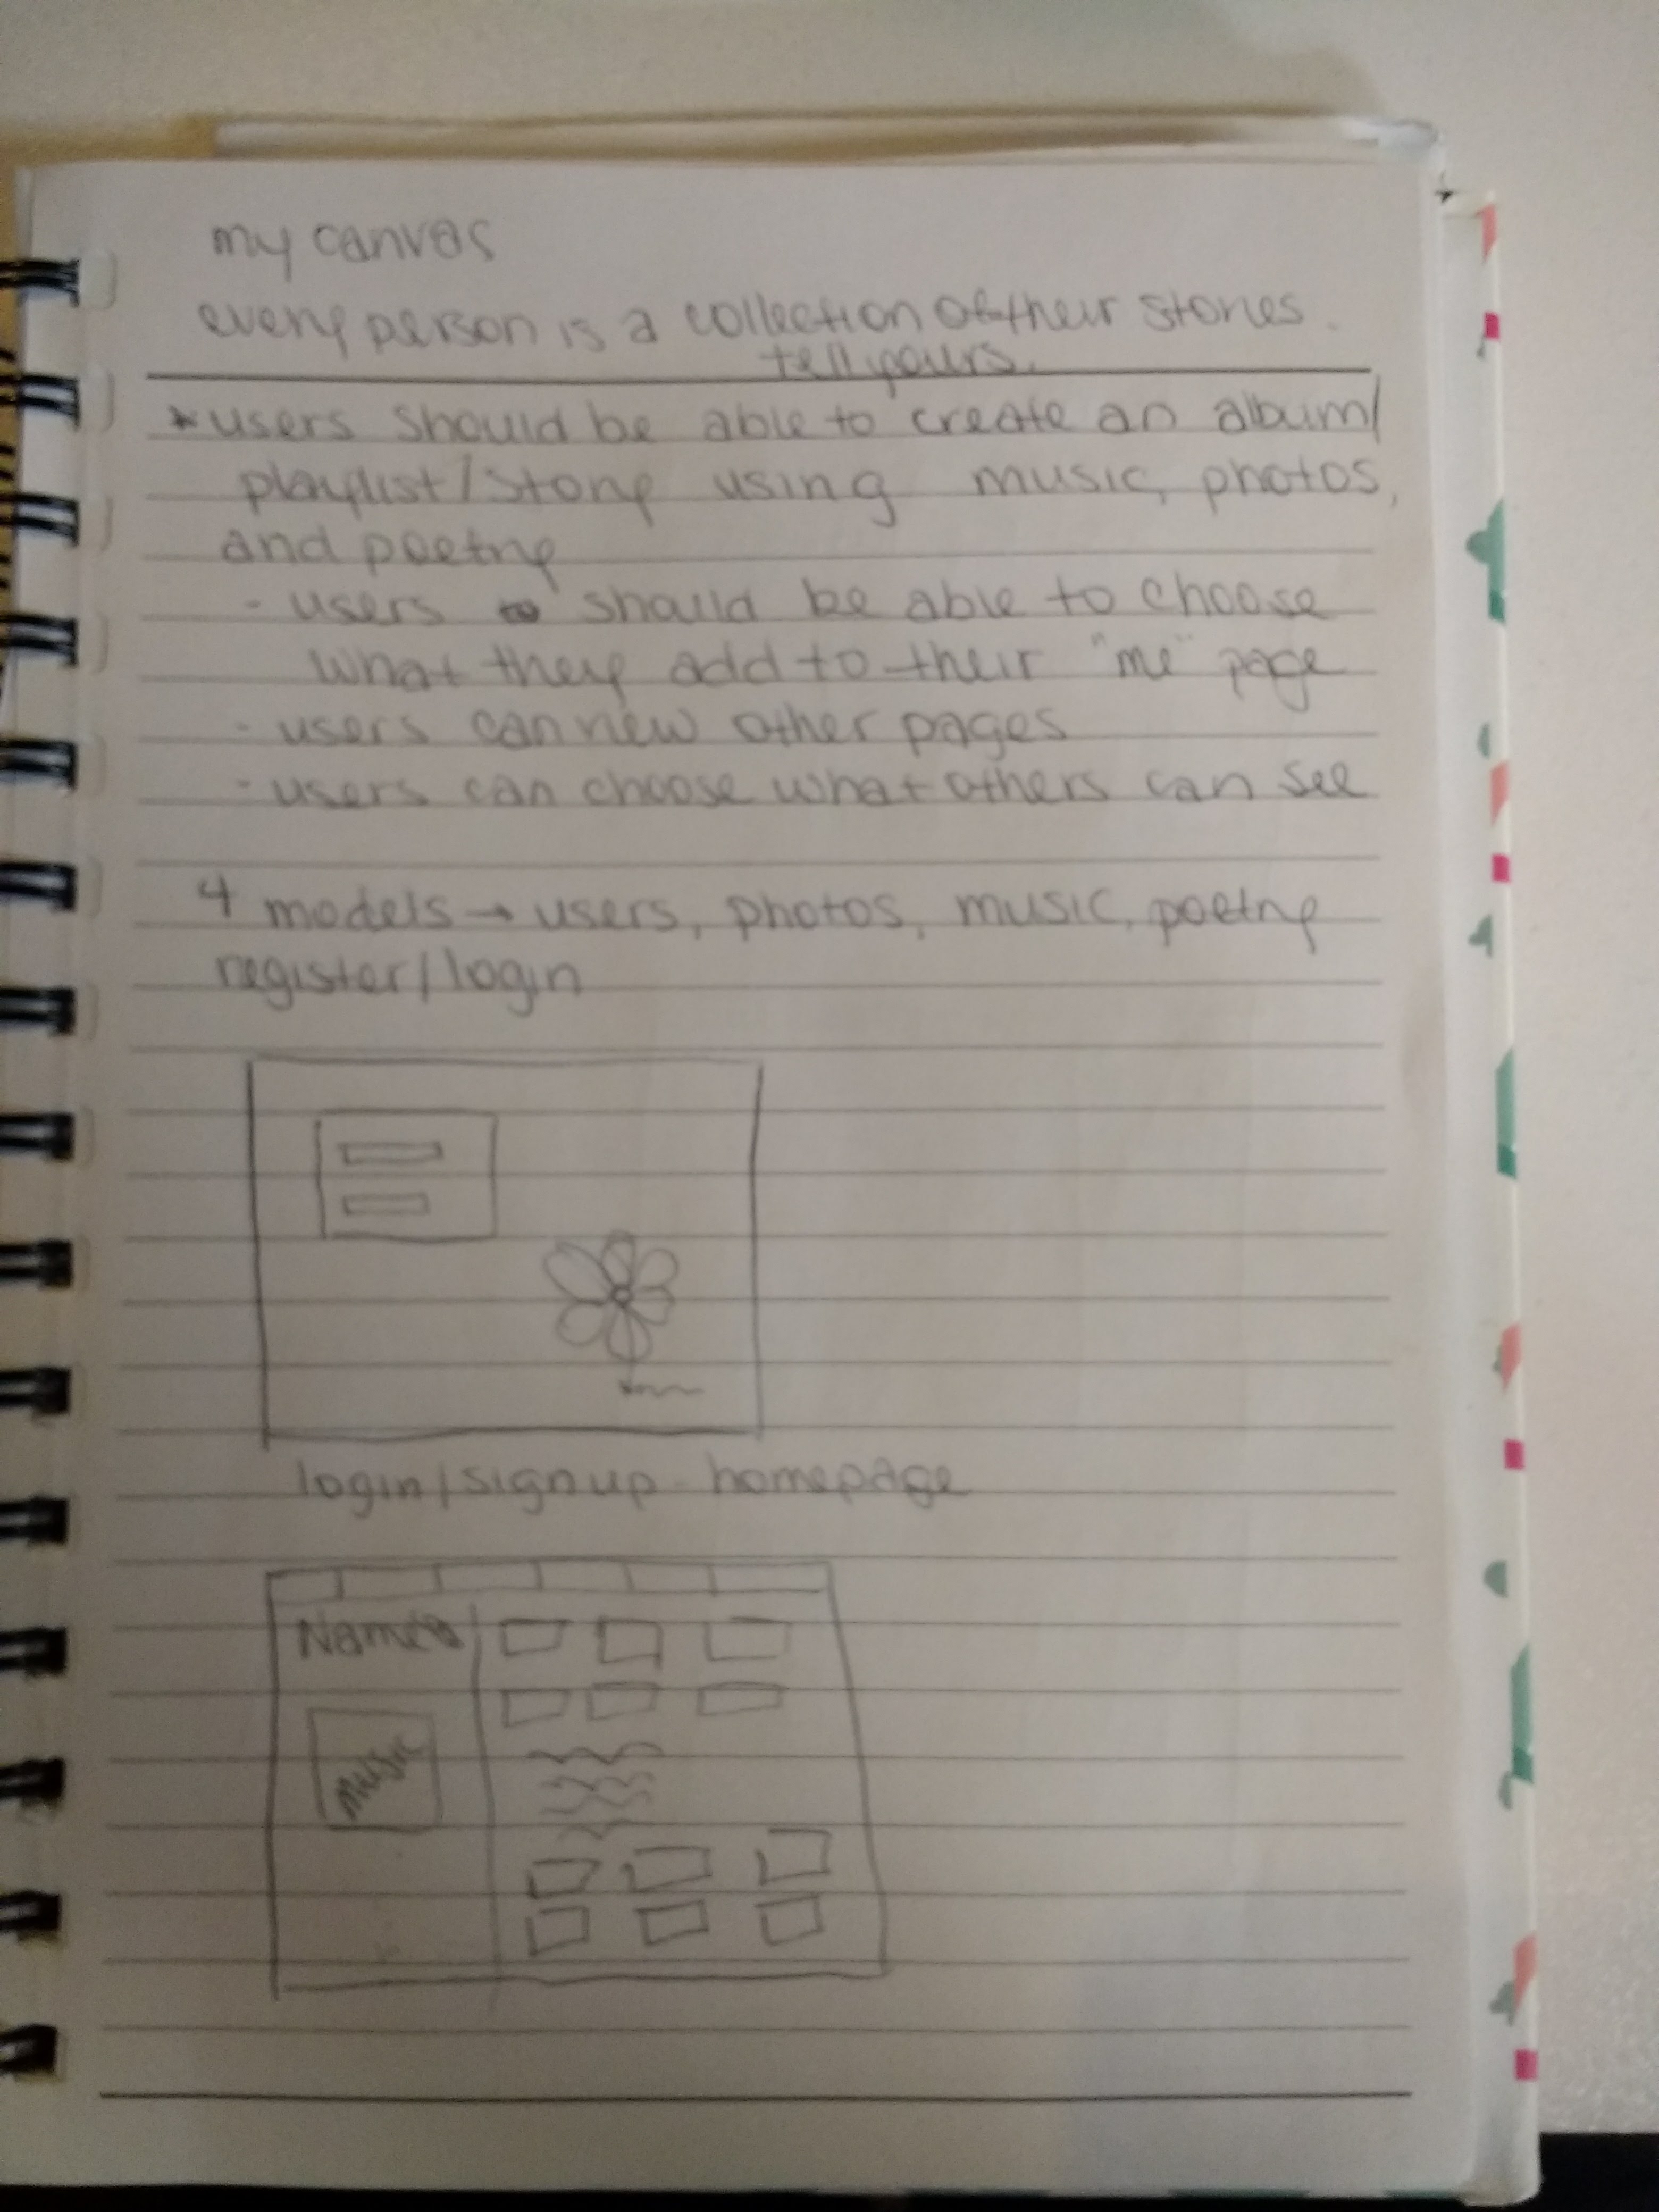 my canvas
every person is a collection of their stories.
tell yours.
* users should be able to create an album/
playlist/story using music, photos,
and poetry
- users should be able to choose
what they add to their "me" page
- users can view other pages
- users can choose what others can see
4 models → users, photos, music, poetry
register/login
login/signup - homepage
Name
music